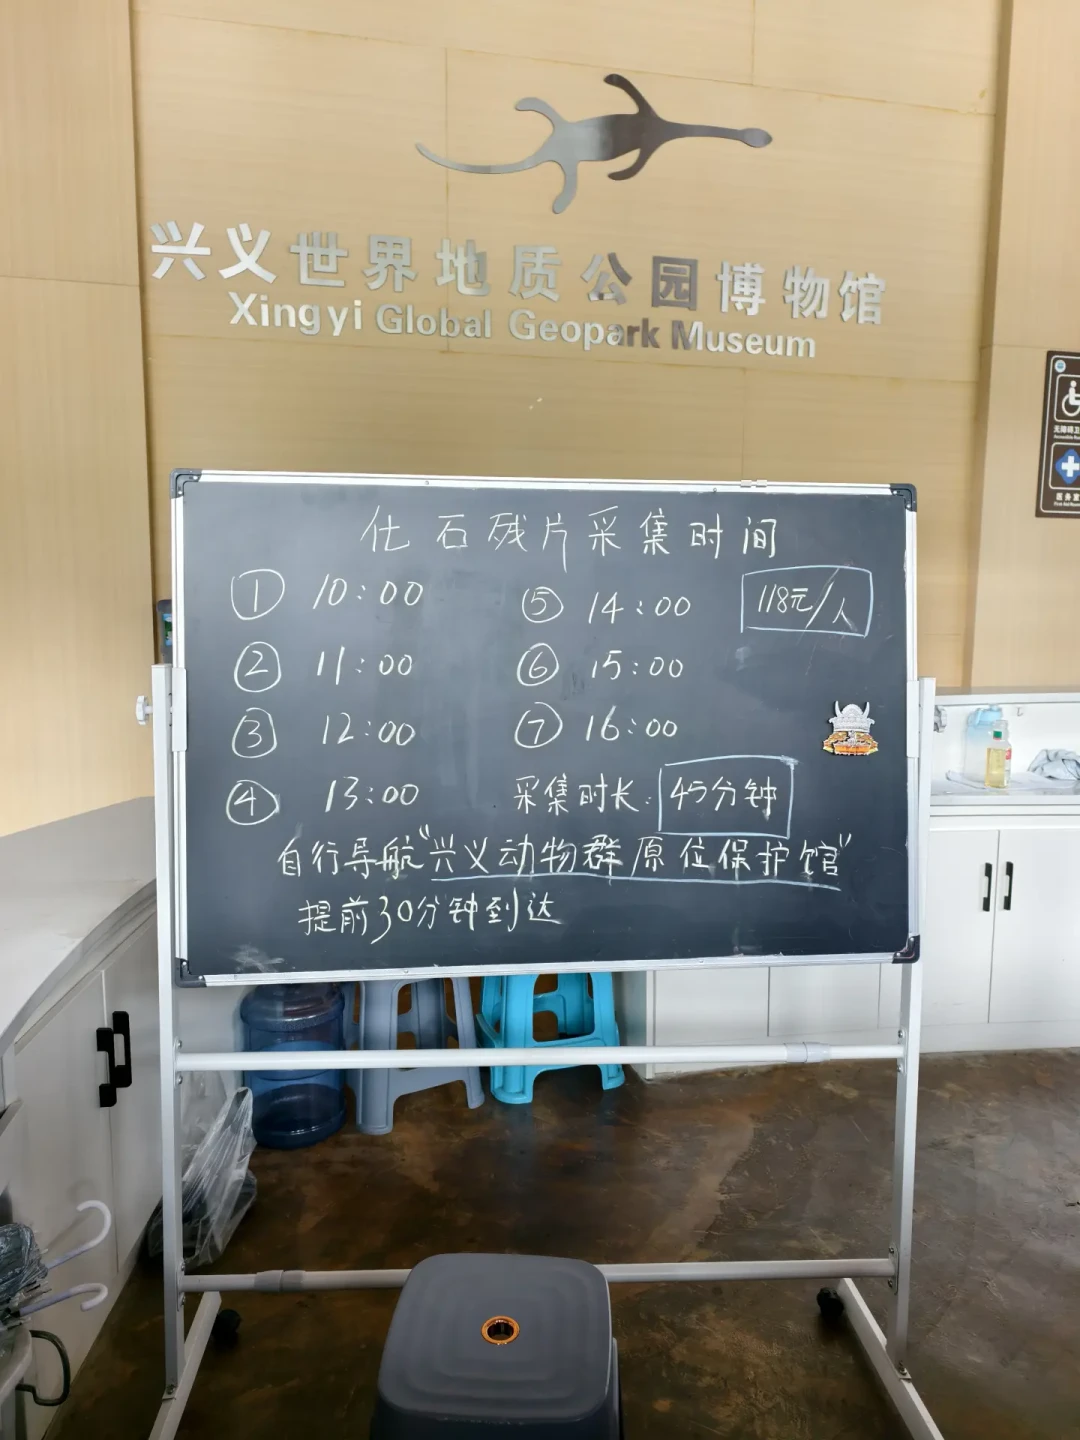 兴义世界地质公园博物馆
Xingyi Global Geopark Museum
化石残片采集时间
① 10:00 ⑤ 14:00 118元/人
② 11:00 ⑥ 15:00
③ 12:00 ⑦ 16:00
④ 13:00 采集时长: 45分钟
自行导航“兴义动物群原位保护馆”
提前30分钟到达